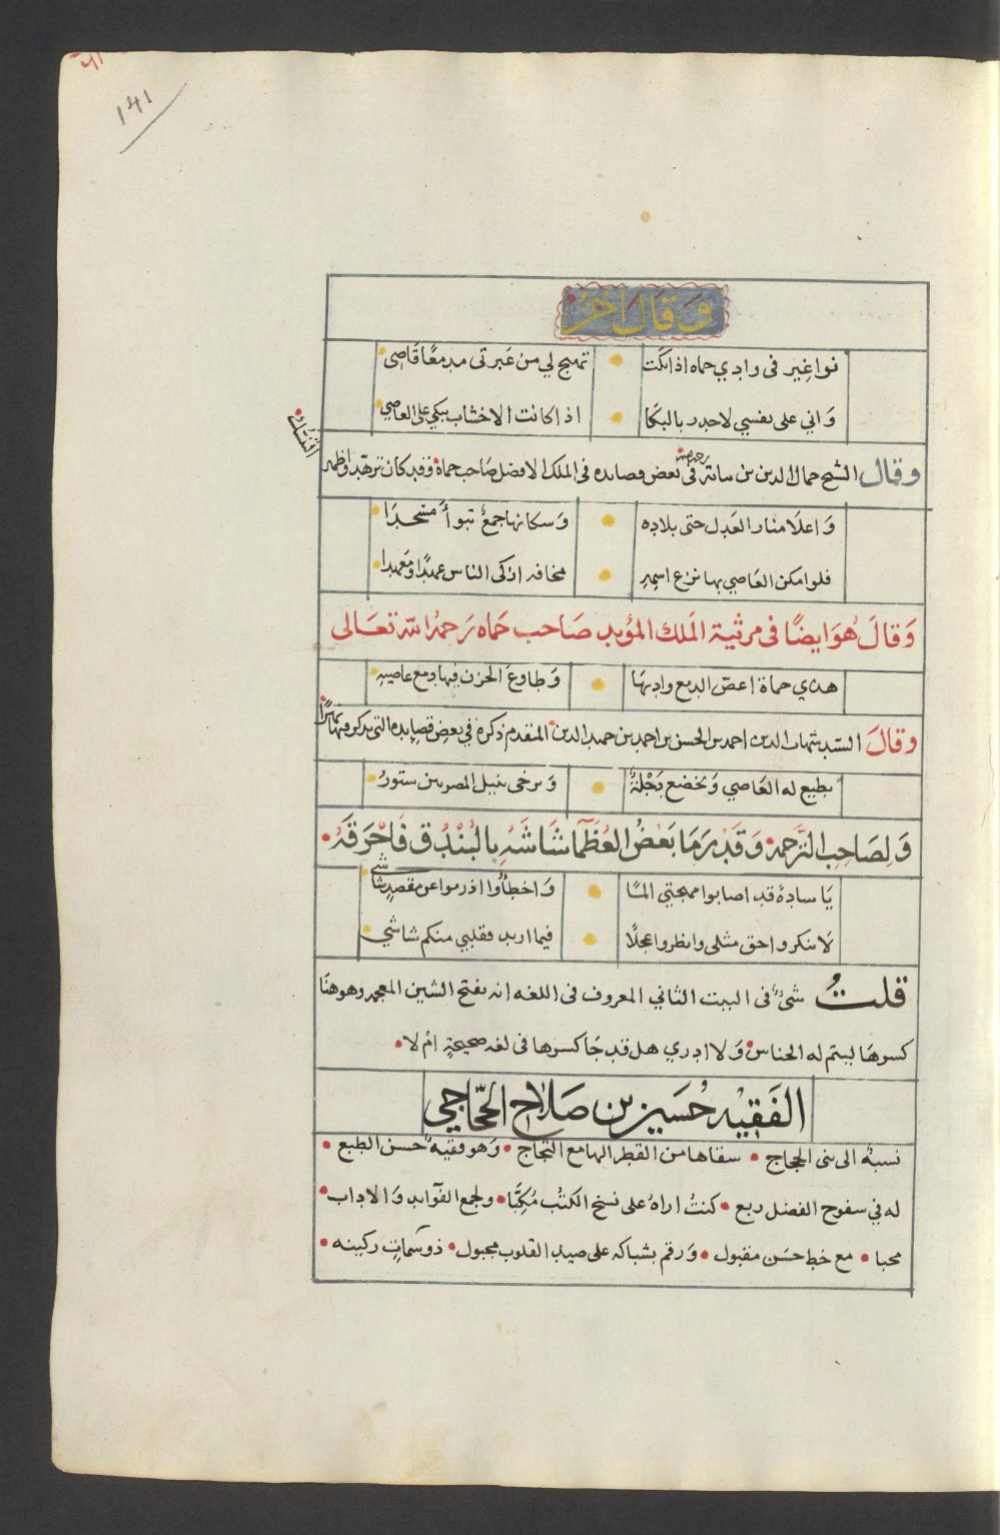 ١٤١
وَقَالَ آخرُ
نواغِير فى وادي حماه اذا بكَت ۝ تهيج لي من عَبرتى مدمعًا قَاصِى
وَاني على نفسي لاجدر بالبكَا ۝ اذا كانت الاخشاب يبكي على العاصي
وقال الشيخ جمال الدين بن نباتة رحمه في بعض قصايده فى الملك الافضل صَاحب حماة وقد كان تزهّد واظهر
التنسّك
وَاعلَا منار العَدل حتى بلاده ۝ وَسكانها جمعٌ تبوأ مسجدَا
فلو امكن العَاصي بها نزع اسمِهِ ۝ مخافه ازكى الناس عمدًا ومَعمدا
وَقَالَ هُوَ ايضًا فى مرثية الَملك المؤيد صَاحب حَماه رَحمهُ اللّه تعَالى
هذي حماة اغصّ الدمع واديهَا ۝ وَطاوعَ الحزن فيها دمع عاصيهِ
وقالَ السّيد شهاب الدين احمد بن الحسن بن احمد بن حميد الدين المتقدم ذكره في بعض قصايده التى يذكر فيها
يطيع له العَاصي وَتخضع دَجْلةٌ ۝ وَترخى بنيل المصريين ستورُ
وَلِصَاحِبِ التَّرجمة وَقَدْ رَمَا بَعْضُ العُظَمَا شَاشَهُ بِالبُنْدُق فَاحْرَقَهُ
يَا سادةً قد اصابوا مهجتي المًا ۝ وَاخطأوا اذ رموا عن مقصدٍ شاشى
لَا تنكروا حق مثلى وانظروا عجلًا ۝ فيما اريد فقلبي منكم شاشي
قلتُ شىْ فى البيت الثاني المعروف فى اللغه انه بفتح الشين المعجمه وهو هنَا
كسرهَا ليتم له الجناس وَلا ادري هل قد جَا كسرها فى لغه صحيحةٍ امْ لا
الفَقِيْه حُسَين بن صَلاح الحَجّاجي
نسبهُ الى بنى الحجاج سقاها من القطر الهامع الثجاج وَهو فقيهٌ حسن الطبع
له في سفوح الفضل ربع كنتُ اراهُ على نسخ الكتْب مُكِبًّا ولجمع الفوَايد وَالاداب
محبا مع خط حسَن مقبول وَرقم بشباكه على صيد القلوب مجبول ذو سَماتٍ ركينه